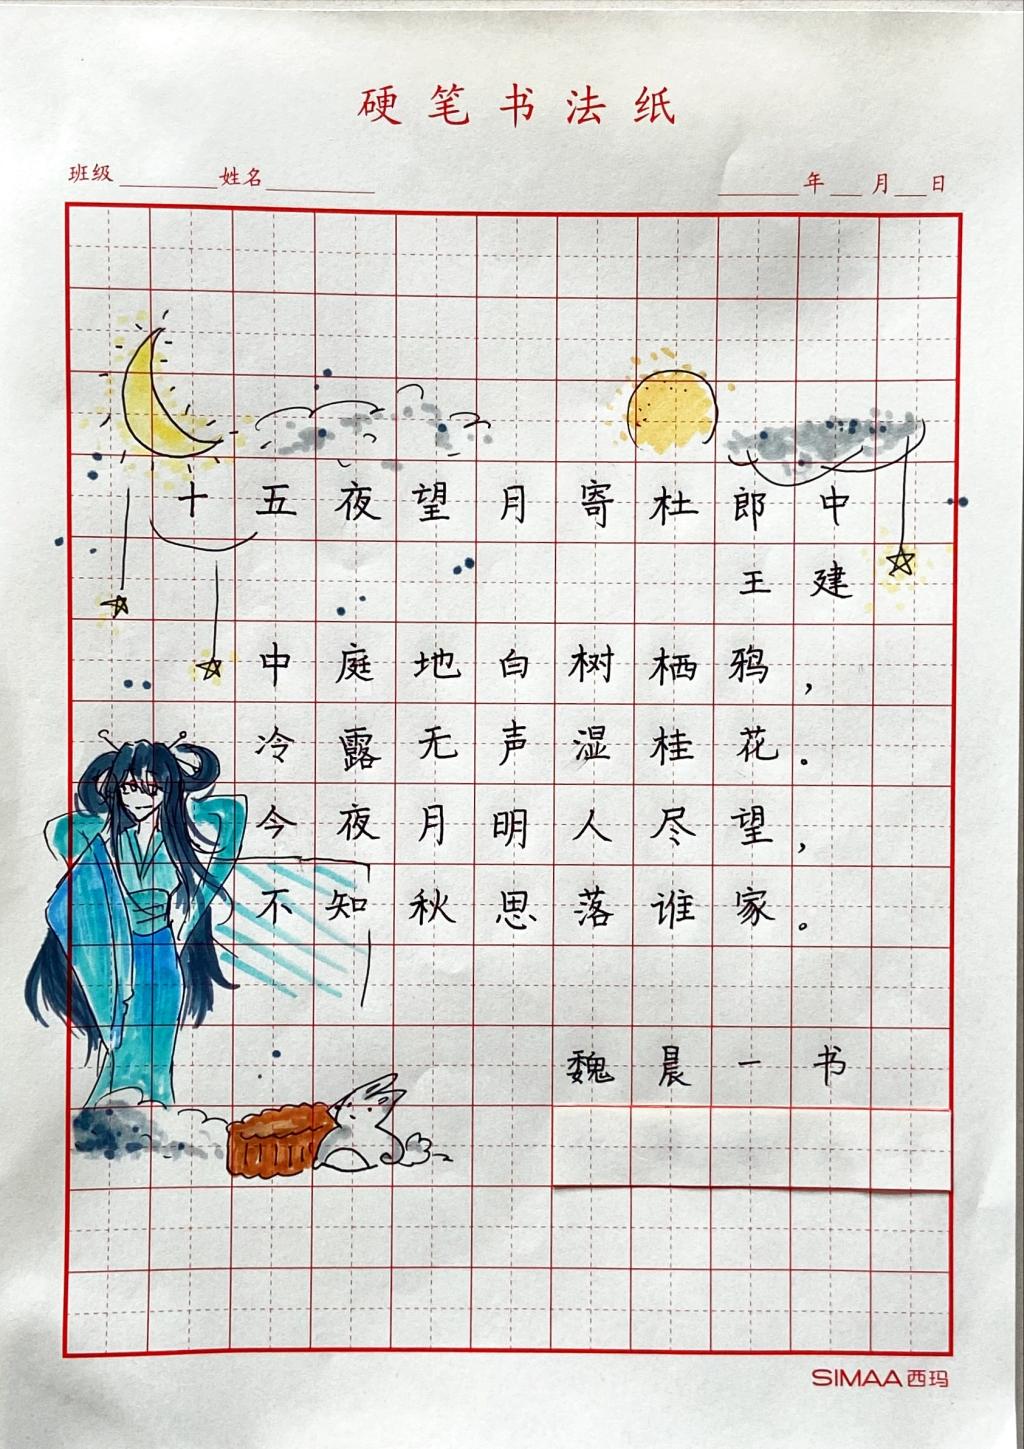 硬笔书法纸
班级 姓名 年 月 日
十五夜望月寄杜郎中
王建
中庭地白树栖鸦，
冷露无声湿桂花。
今夜月明人尽望，
不知秋思落谁家。
魏晨一书
SIMAA西玛